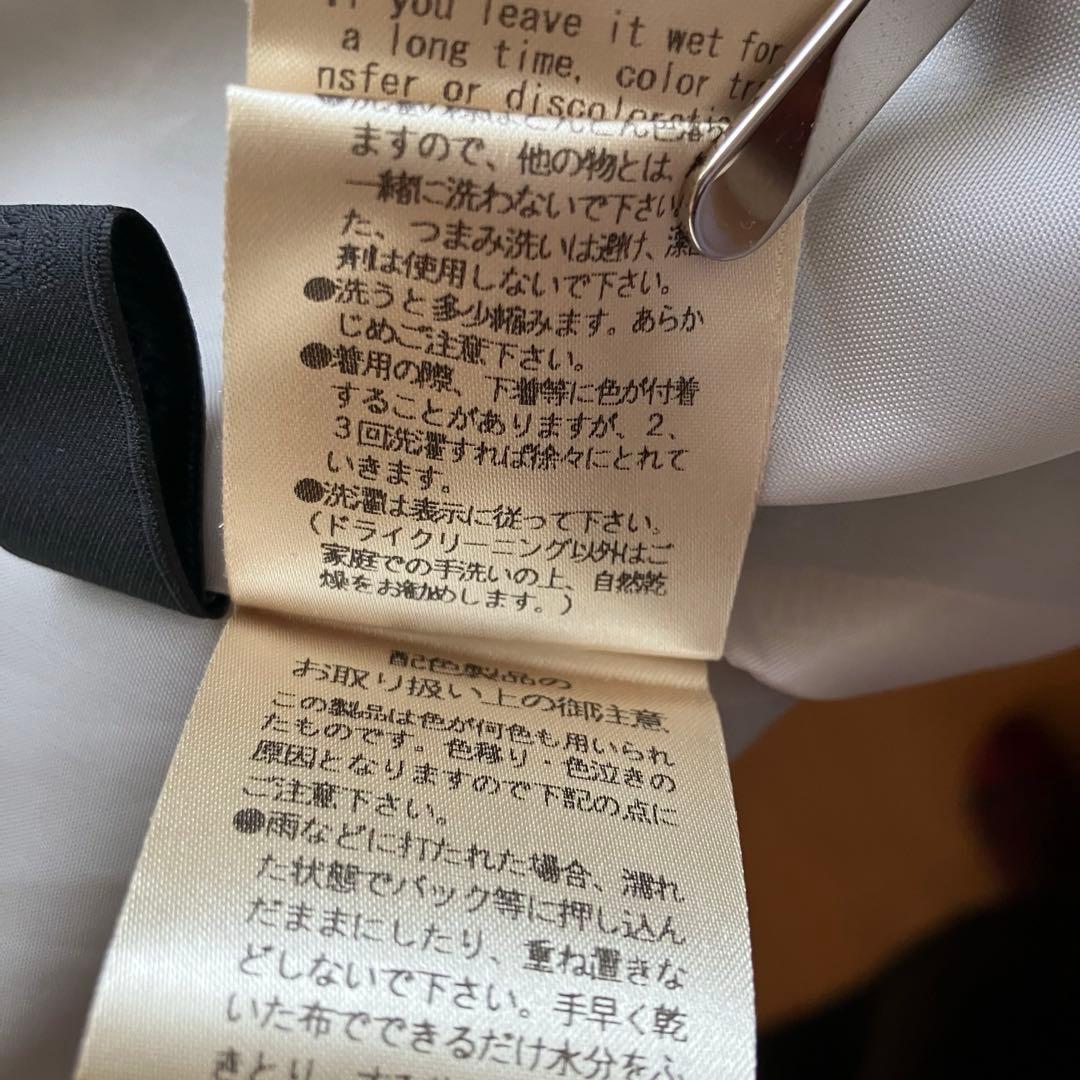 If you leave it wet for
a long time, color tra
nsfer or discoloratio
ますので、他の物とは、
一緒に洗わないで下さい
た、つまみ洗いは避け、漂
剤は使用しないで下さい。
●洗うと多少縮みます。あらか
じめご注意下さい。
●着用の際、下着等に色が付着
することがありますが、2、
3回洗濯すれば徐々にとれて
いきます。
●洗濯は表示に従って下さい。
(ドライクリーニング以外はご
家庭での手洗いの上、自然乾
燥をお勧めします。)
配色製品の
お取り扱い上の御注意
この製品は色が何色も用いられ
たものです。色移り・色泣きの
原因となりますので下記の点に
ご注意下さい。
●雨などに打たれた場合、濡れ
た状態でバック等に押し込ん
だままにしたり、重ね置きな
どしないで下さい。手早く乾
いた布でできるだけ水分をふ
きとり、